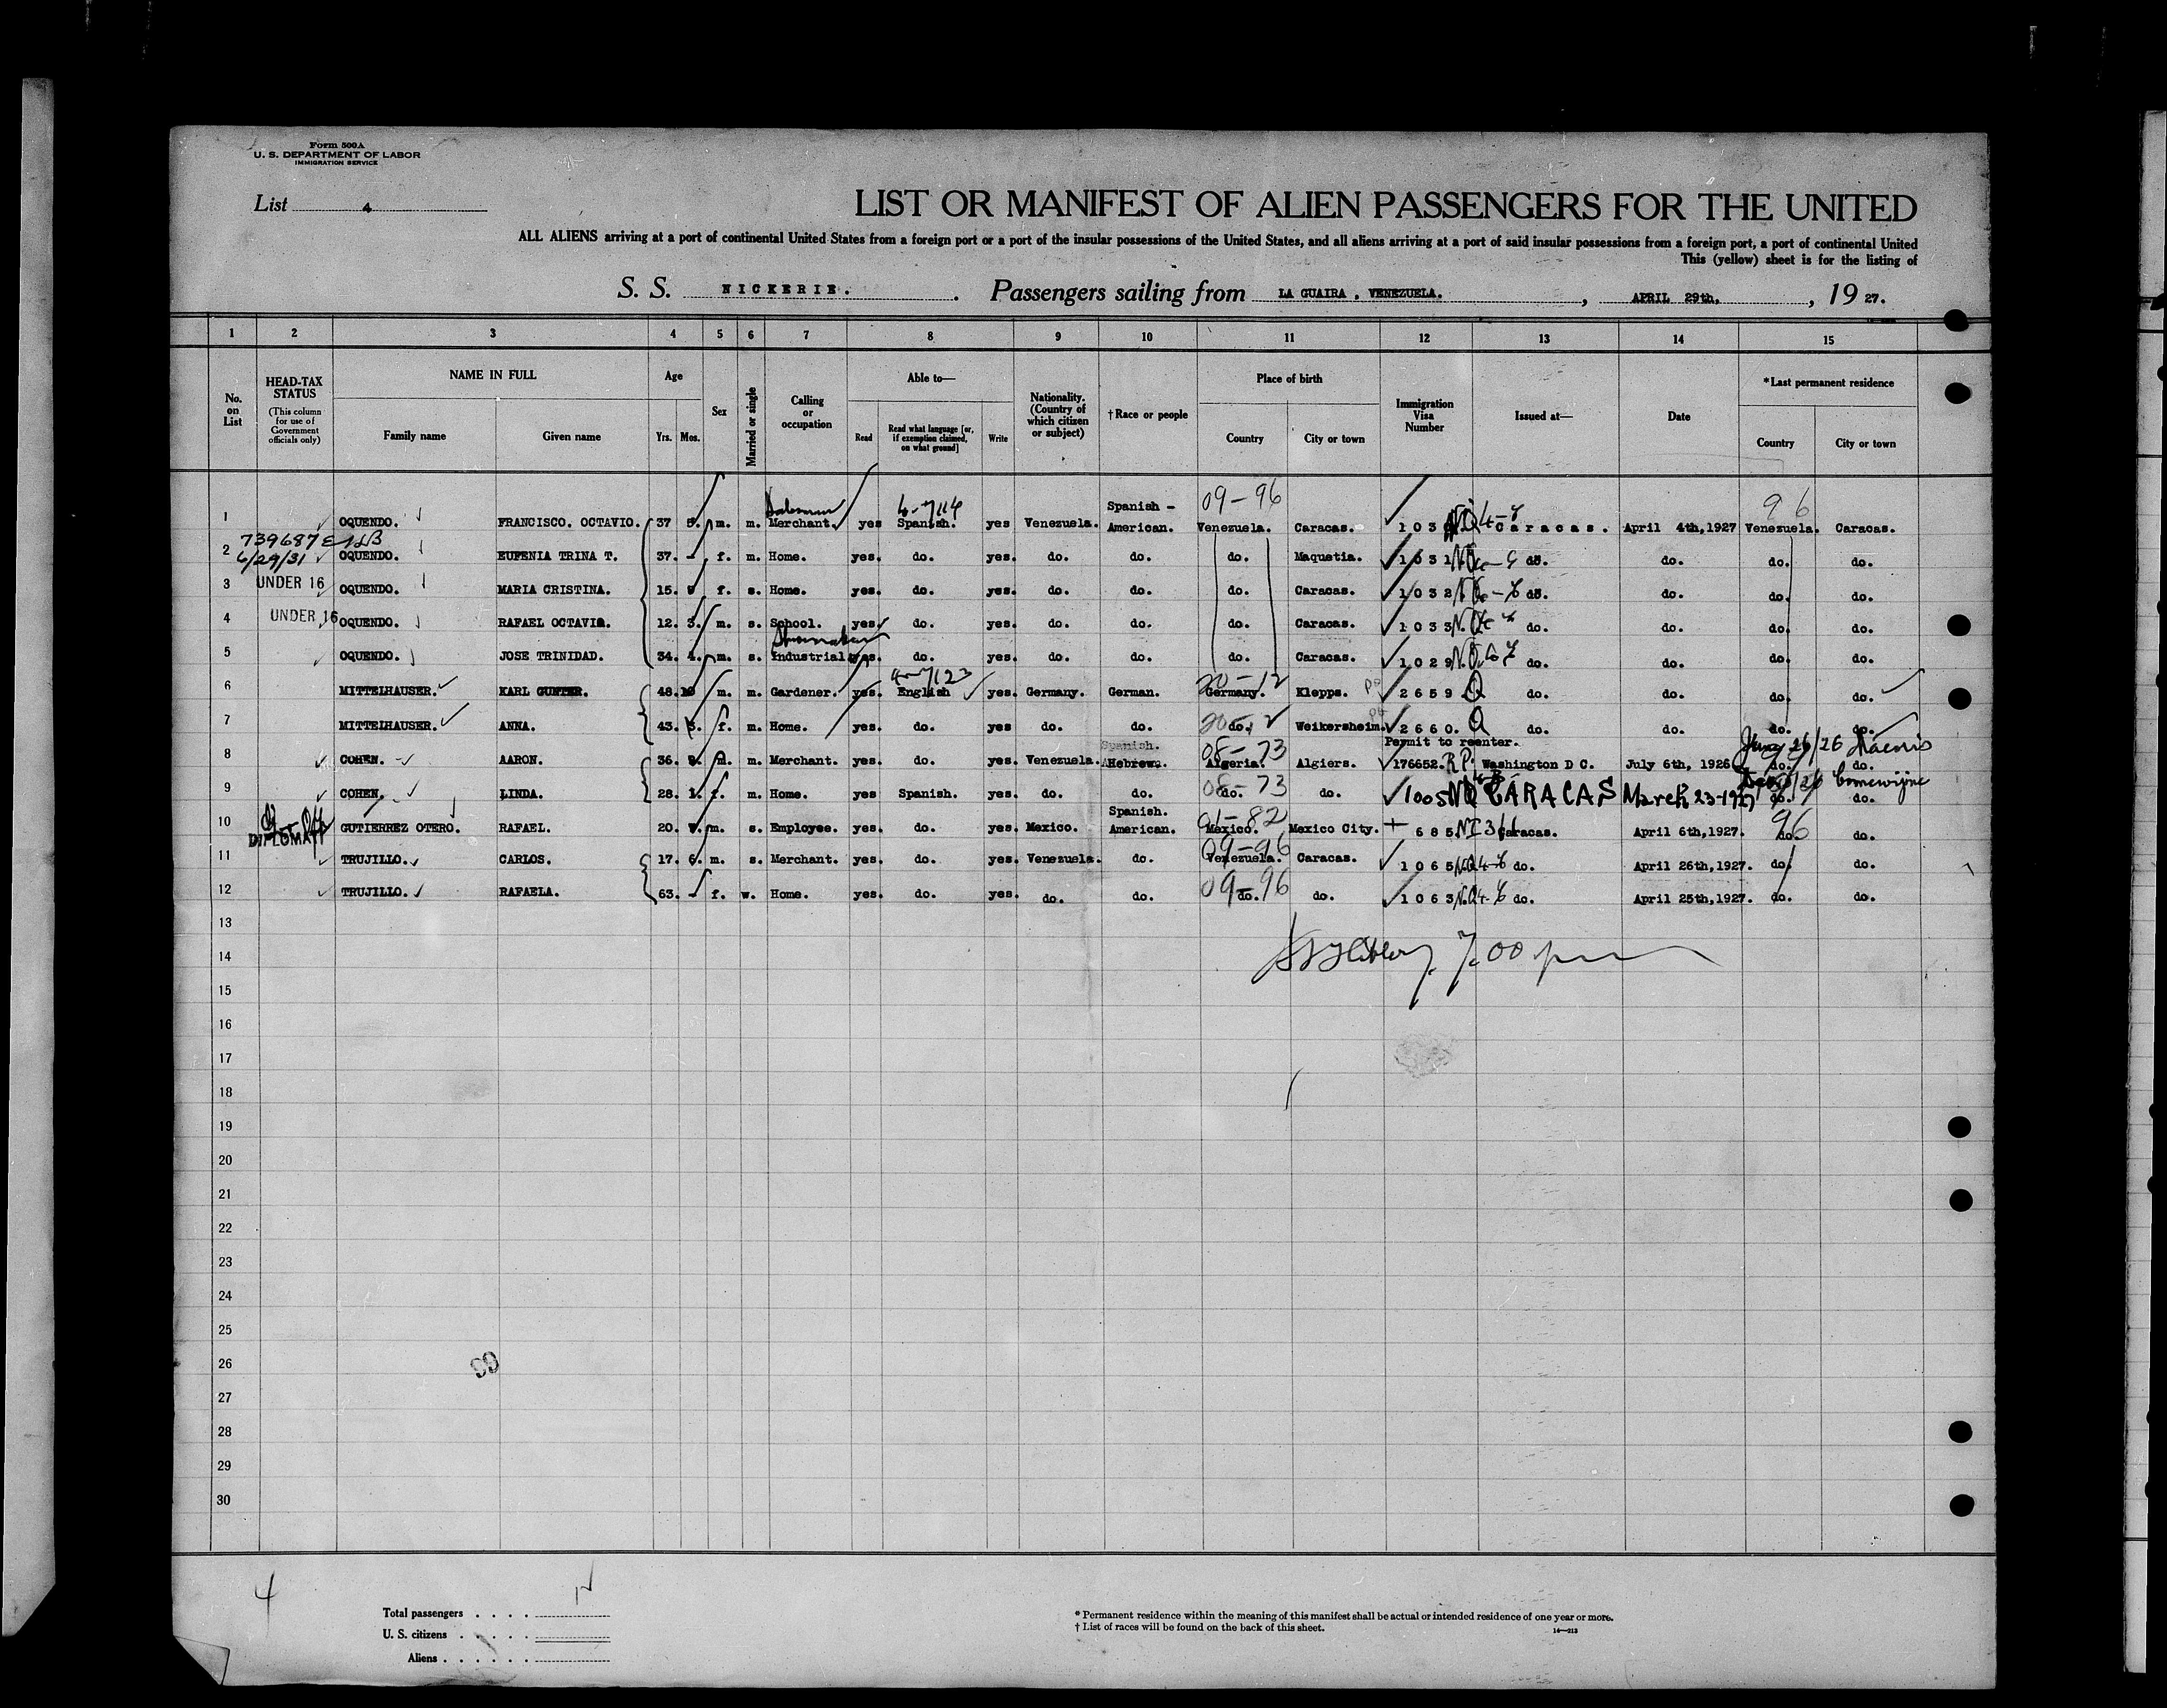 Form 500A
U. S. DEPARTMENT OF LABOR
IMMIGRATION SERVICE
List 4
LIST OR MANIFEST OF ALIEN PASSENGERS FOR THE UNITED
ALL ALIENS arriving at a port of continental United States from a foreign port or a port of the insular possessions of the United States, and all aliens arriving at a port of said insular possessions from a foreign port, a port of continental United
This (yellow) sheet is for the listing of
S. S. NICKERIE. . Passengers sailing from LA GUAIRA , VENEZUELA. , APRIL 29th, , 19 27.
1 2 3 4 5 6 7 8 9 10 11 12 13 14 15
No. on List
HEAD-TAX STATUS (This column for use of Government officials only)
NAME IN FULL
Family name Given name
Age
Yrs. Mos.
Sex
Married or single
Calling or occupation
Able to—
Read Read what language [or, if exemption claimed, on what ground] Write
Nationality. (Country of which citizen or subject)
†Race or people
Place of birth
Country City or town
Immigration Visa Number
Issued at—
Date
*Last permanent residence
Country City or town
Salesman 09-96 96
1 OQUENDO. FRANCISCO. OCTAVIO. 37 m. m. Merchant. yes Spanish. yes Venezuela. Spanish - American. Venezuela. Caracas. 103 Caracas. April 4th,1927 Venezuela. Caracas.
739687
6/29/31
2 OQUENDO. EUFENIA TRINA T. 37. - f. m. Home. yes. do. yes. do. do. do. Maquetia. 1031 do. do. do. do.
3 UNDER 16 OQUENDO. MARIA CRISTINA. 15. f. s. Home. yes. do. yes. do. do. do. Caracas. 1032 do. do. do. do.
4 UNDER 16 OQUENDO. RAFAEL OCTAVIO. 12. 3. m. s. School. yes. do. yes. do. do. do. Caracas. 1033 do. do. do. do.
Shoemaker
5 OQUENDO. JOSE TRINIDAD. 34. 4. m. s. Industrial yes. do. yes. do. do. do. Caracas. 1029 do. do. do. do.
20-12
6 MITTELHAUSER. KARL GUNTER. 48. 10 m. m. Gardener. yes. English yes. Germany. German. Germany. Klepps. 2659 Q do. do. do. do.
7 MITTELHAUSER. ANNA. 43. 3. f. m. Home. yes. do. yes do. do. do. Weikersheim. 2660. Q do. do. do. do.
Permit to reenter.
8 COHEN. AARON. 36. m. m. Merchant. yes. do. yes. Venezuela. Spanish. Hebrew. 08-73 Algeria. Algiers. 176652. R P. Washington D C. July 6th, 1926 do. do.
9 COHEN. LINDA. 28. 1. f. m. Home. yes Spanish. yes. do. do. 08-73 do. do. 1005 CARACAS March 23-1927 do. do.
10 DIPLOMAT GUTIERREZ OTERO. RAFAEL. 20. m. s. Employee. yes. do. yes. Mexico. Spanish. American. Mexico. Mexico City. 685 Caracas. April 6th,1927. 96 do. do.
11 TRUJILLO. CARLOS. 17. 6. m. s. Merchant. yes. do. yes. Venezuela. do. 09-96 Venezuela. Caracas. 1065 do. April 26th,1927. do. do.
12 TRUJILLO. RAFAELA. 63. - f. w. Home. yes. do. yes. do. do. 09-96 do. do. 1063 do. April 25th,1927. do. do.
13
14 7.00 pm
15
16
17
18
19
20
21
22
23
24
25
26
27
28
29
30
99
4
Total passengers . . . .
U. S. citizens . . . . .
Aliens . . . . . .
* Permanent residence within the meaning of this manifest shall be actual or intended residence of one year or more.
† List of races will be found on the back of this sheet.
14—213